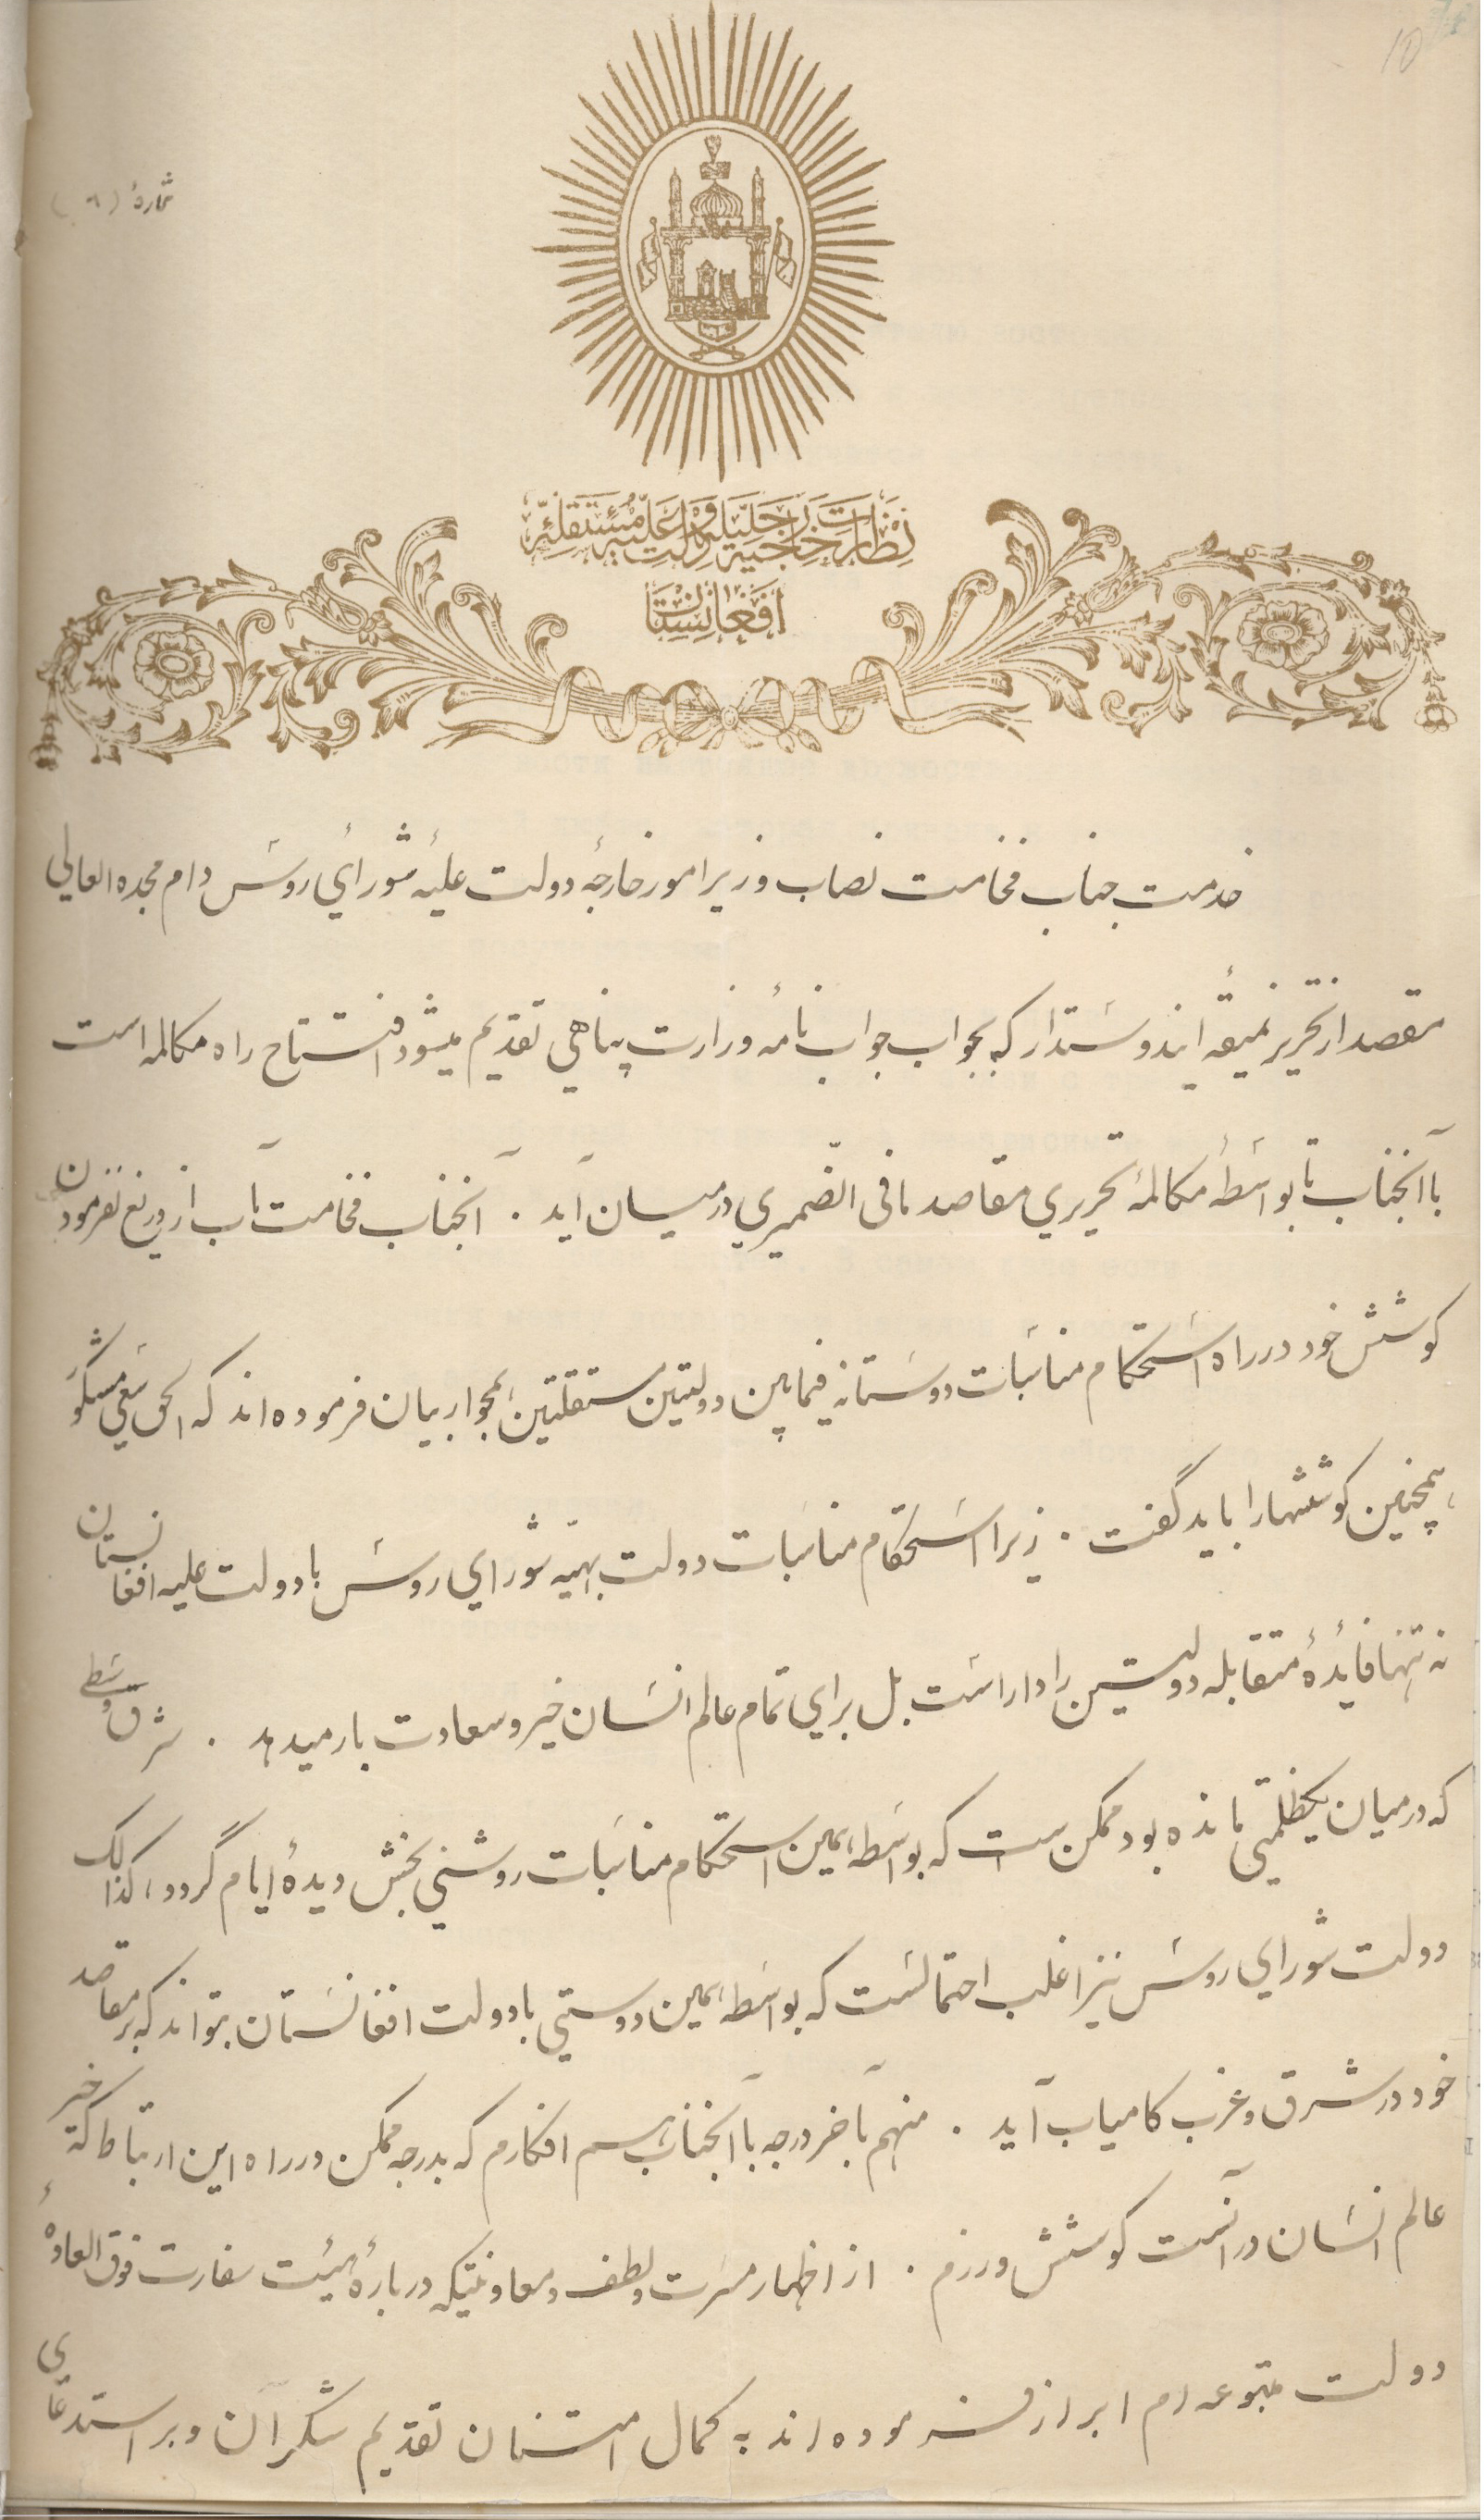 10
شمارهٔ (٦)
نظارت جلیلهٔ خارجیه دولت علیه مستقلهٔ
افغانستان
خدمت جناب فخامت نصاب وزیر امور خارجهٔ دولت علیهٔ شورائی روس دام مجده العالی
مقصد از تحریر نمیقهٔ ایندوستدار که بجواب جواب نامهٔ وزارت پناهی تقدیم میشود افتتاح راه مکالمه است
با آنجناب تا بواسطهٔ مکالمهٔ تحریری مقاصد ما فی الضمیری در میان آید . آنجناب فخامت مآب از دریغ نفرمودن
کوشش خود در راه استحکام مناسبات دوستانه فیمابین دولتین مستقلتین همجوار بیان فرموده اند که الحق سعی مشکور
همچنین کوششها را باید گفت . زیرا استحکام مناسبات دولت بهیهٔ شورای روس با دولت علیه افغانستان
نه تنها فایدهٔ متقابله دولتین را داراست بل برای تمام عالم انسان خیر و سعادت بار میدهد . شرق وسطی
که در میان یکظلمتی مانده بود ممکن ست که بواسطه همین استحکام مناسبات روشنی بخش دیدهٔ ایام گردد، کذالک
دولت شورای روس نیز اغلب احتمالست که بواسطه همین دوستی با دولت افغانستان بتواند که بر مقاصد
خود در شرق و غرب کامیاب آید . منهم بآخر درجه با آنجناب هم افکارم که بدرجه ممکن در راه این ارتباط که خیر
عالم انسان در آنست کوشش ورزم . از اظهار مسرت و لطف و معاونتیکه دربارهٔ هیئت سفارت فوق العادهٔ
دولت متبوعه ام ابراز فرموده اند به کمال امتنان تقدیم شکرآن و بر استدعای